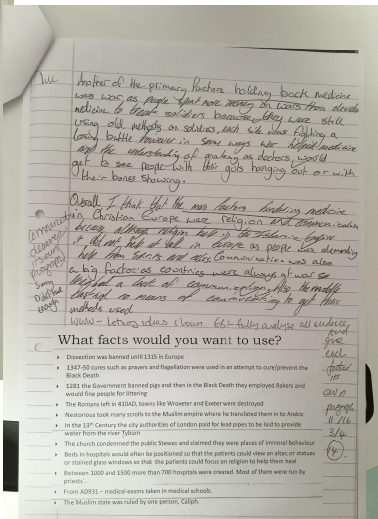 Another of the primary factors holding back medicine
was war, as people spent more money on wars than
medicine to treat soldiers because they were still
using old methods on soldiers, each side was fighting a
losing battle however in some ways war helped medicine
and the understanding of anatomy as doctors, would
get to see people with their guts hanging out or with
their bones showing.
Overall I think that the main factors hindering medicine
in Christian Europe were religion and communication
because although religion help in the Islamic Empire
it did not help at all in Europe as people demanding
help from and Communication was also
a big factor as countries were always at war so
a lack of communication, Also the middle
no means of communicating to get their
methods used
Communication
deserves
its own
paragraph
WWW - Lots of ideas shown. EBI - fully analyse all evidence,
and
give
each
factor
its
own
paragraph
11/16
3/4
14
What facts would you want to use?
▸ Dissection was banned until 1315 in Europe
▸ 1347-50 cures such as prayers and flagellation were used in an attempt to cure/prevent the
Black Death
▸ 1281 the Government banned pigs and then in the Black Death they employed Rakers and
would fine people for littering
▸ The Romans left in 410AD, towns like Wroxeter and Exeter were destroyed
▸ Nestorious took many scrolls to the Muslim empire where he translated them in to Arabic
▸ In the 13th Century the city authorities of London paid for lead pipes to be laid to provide
water from the river Tyburn
▸ The church condemned the public Stewes and claimed they were places of immoral behaviour
▸ Beds in hospitals would often be positioned so that the patients could view an altar, or statues
or stained glass windows so that the patients could focus on religion to help them heal
▸ Between 1000 and 1500 more than 700 hospitals were created. Most of them were run by
priests
▸ From AD931 – medical exams taken in medical schools.
▸ The Muslim state was ruled by one person, Caliph.